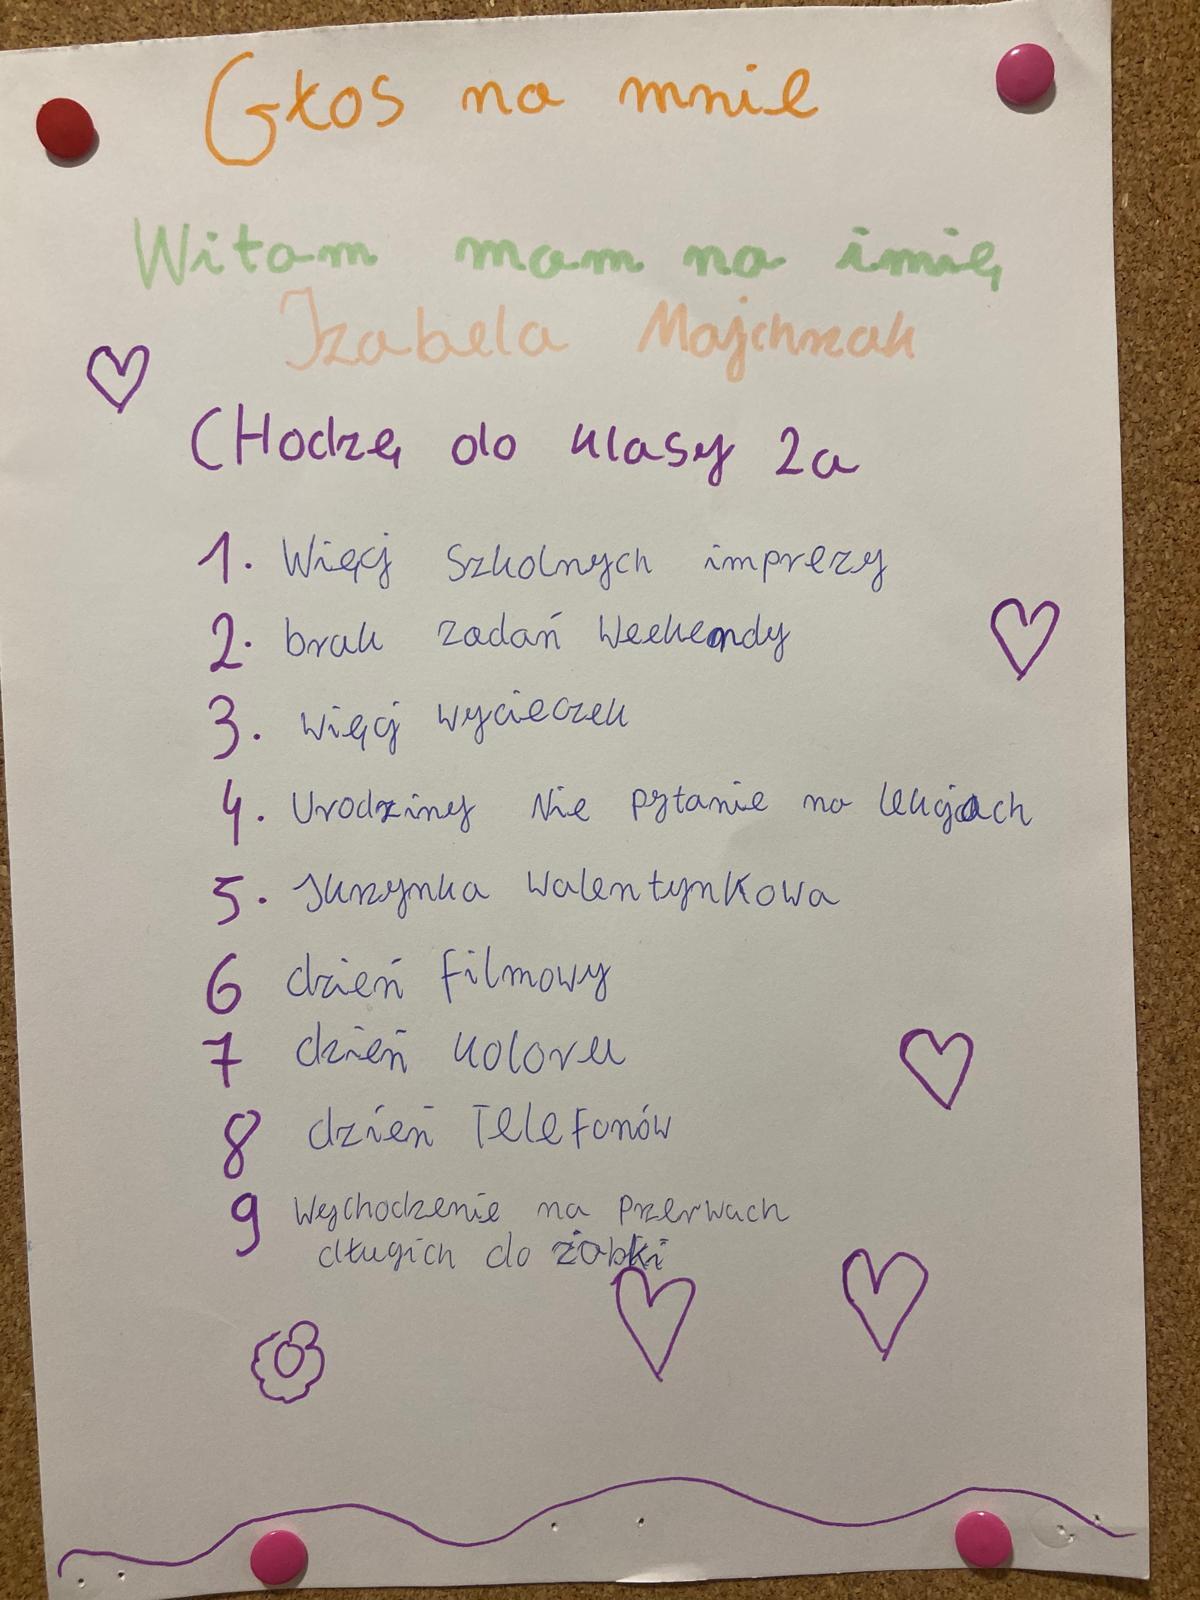 Głos na mnie
Witam mam na imię
Izabela Majchrzak
CHodzę do klasy 2a
1. Więcj Szkolnych imprezy
2. brak zadań Weekendy
3. więcj wycieczek
4. Urodziny Nie pytanie na lekcjach
5. Skrzynka Walentynkowa
6 dzień filmowy
7 dzień koloru
8 dzień Telefonów
9 Wychodzenie na Przerwach
długich do żabki